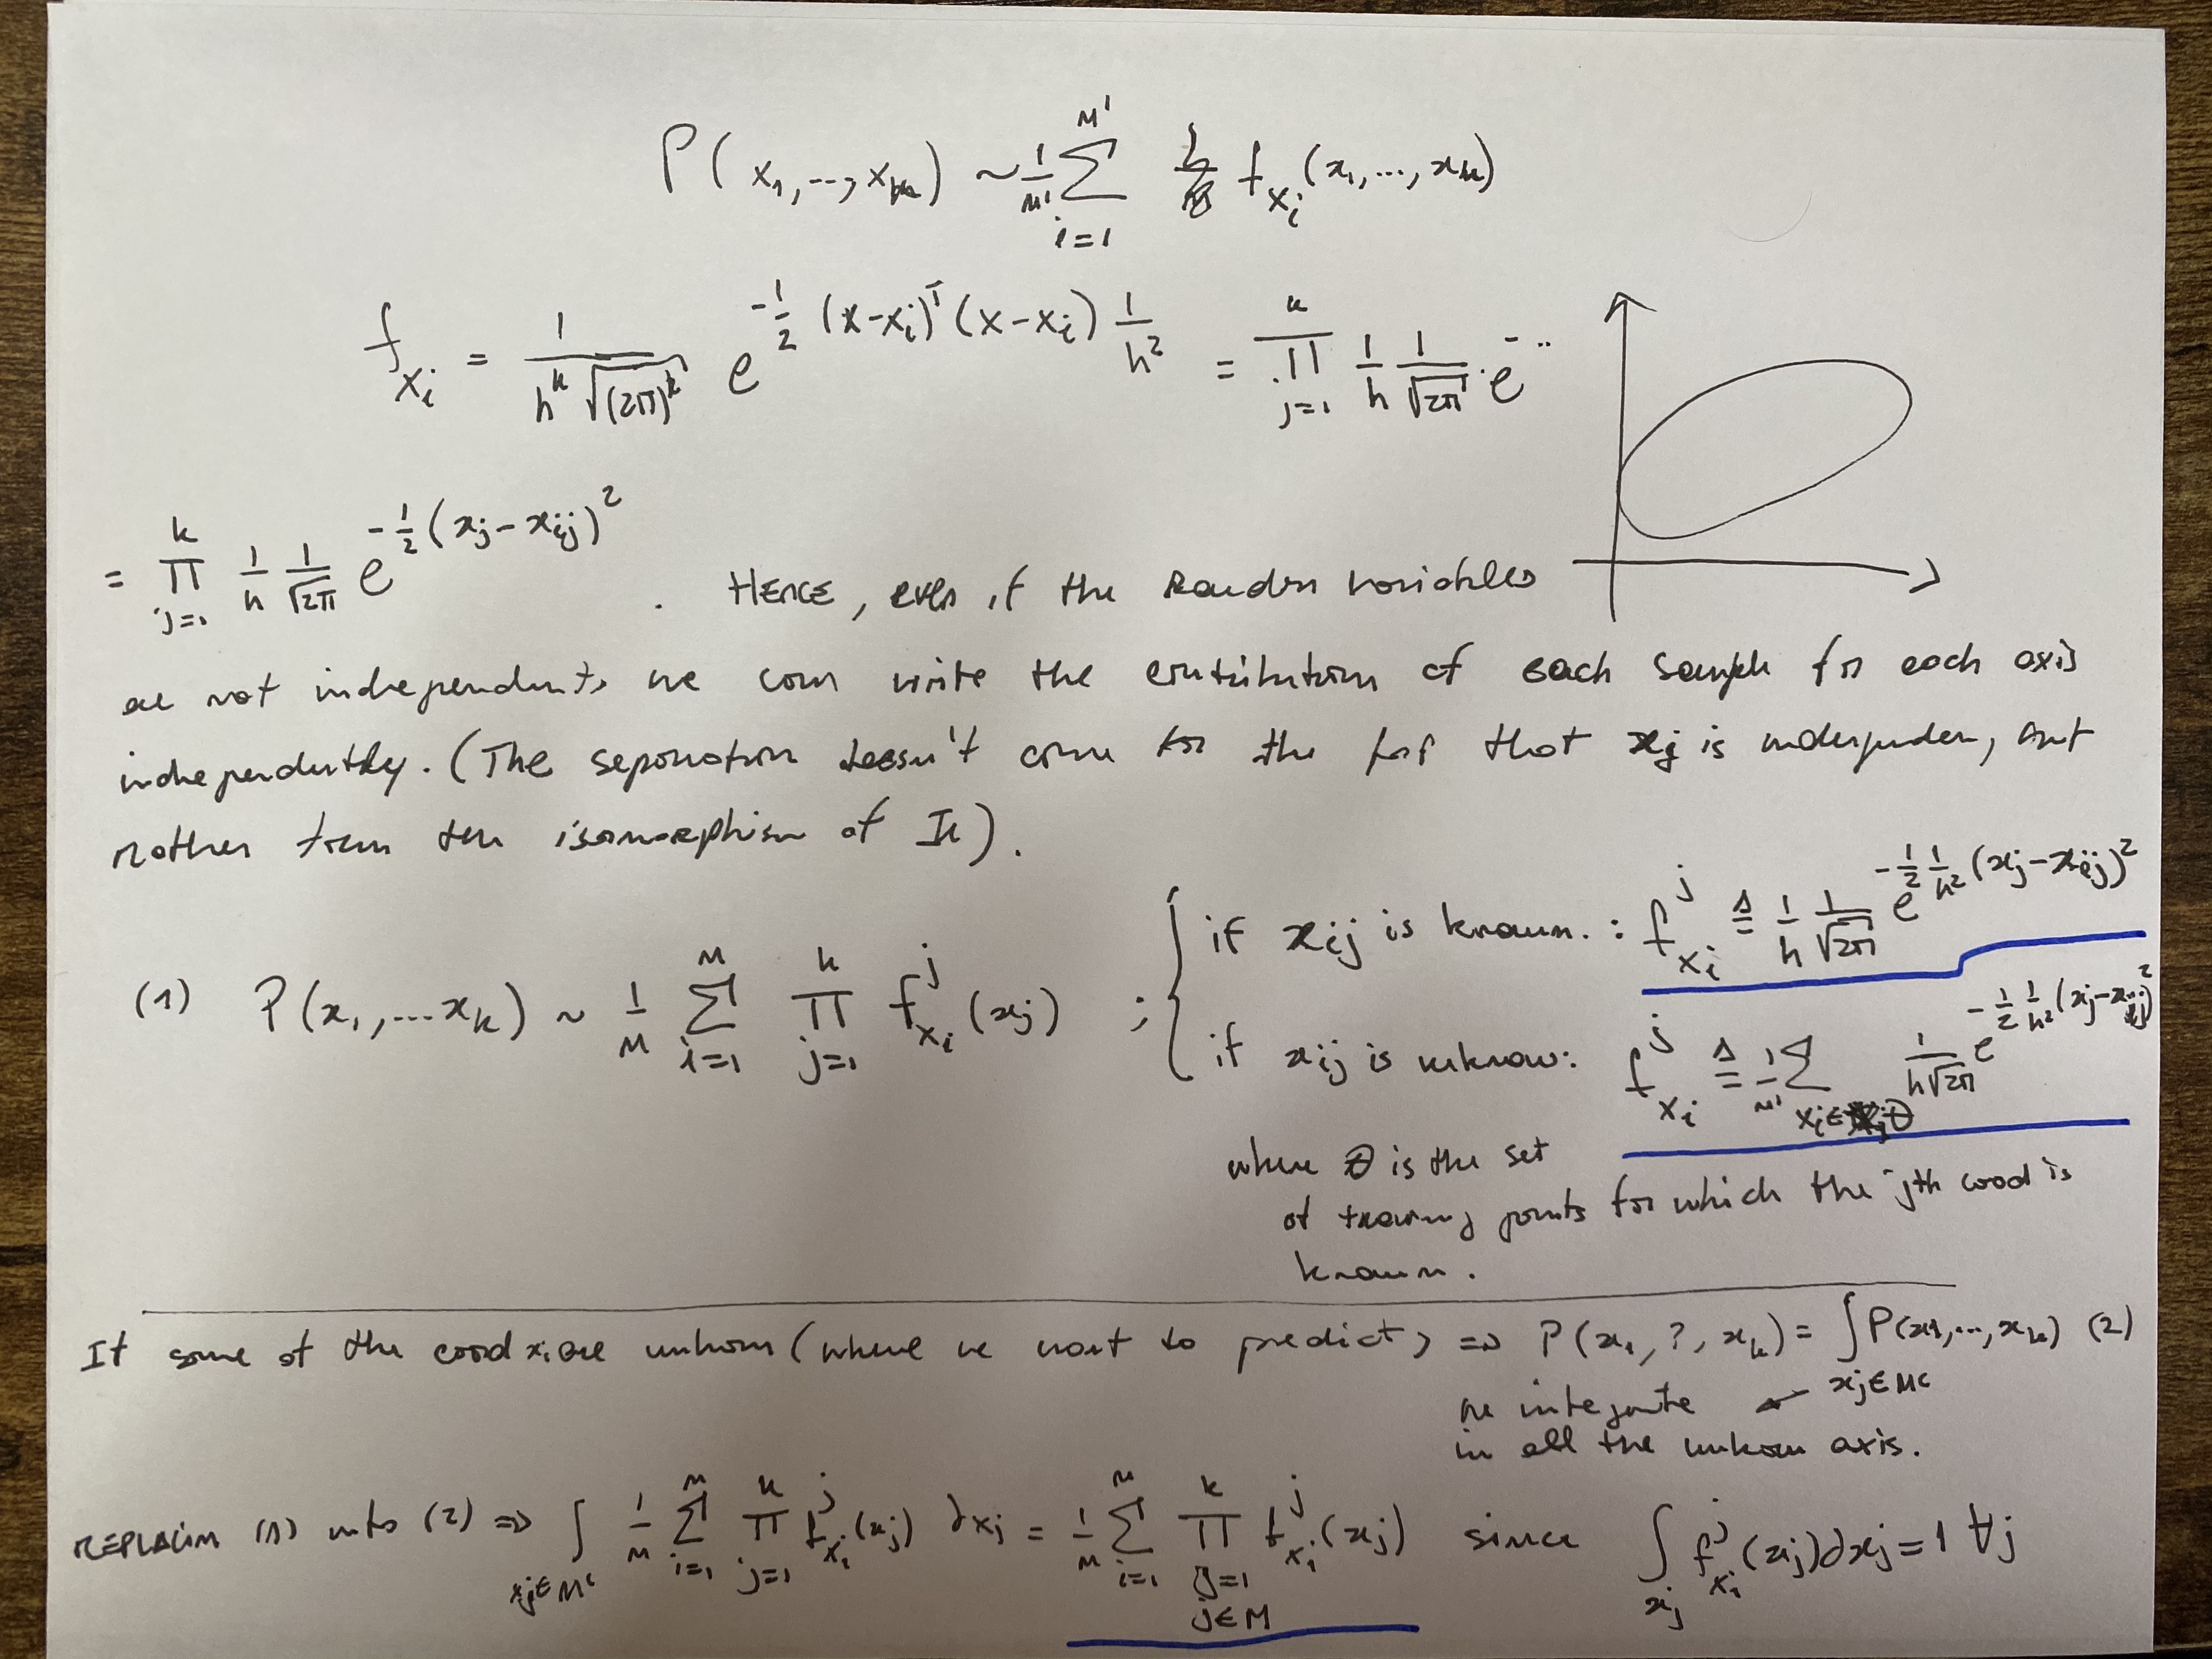 P(x₁,..,xₖ) ~ 1/M' Σ_{i=1}^{M'} f_{x_i}(x₁,...,xₖ)
f_{x_i} = 1/(h^k √(2π)^k) e^{-1/2 (x-x_i)^T (x-x_i) 1/h²} = Π_{j=1}^{k} 1/h 1/√2π · e^{-..}
= Π_{j=1}^{k} 1/h 1/√2π e^{-1/2 (x_j - x_ij)²} . HENCE, even if the random variables
are not independent, we can write the contribution of each sample for each axis
independently. (The separation doesn't come for the fact that x_j is independen, but
rather from the isomorphism of I_k).
(1) P(x₁,...xₖ) ~ 1/M Σ_{i=1}^{M} Π_{j=1}^{k} f^j_{x_i}(x_j) ; { if x_ij is known. : f^j_{x_i} ≜ 1/h 1/√2π e^{-1/2 1/h² (x_j - x_ij)²}
if x_ij is unknow: f^j_{x_i} ≜ 1/M' Σ_{x_i ∈ Θ} 1/(h√2π) e^{-1/2 1/h² (x_j - x_ij)²}
where Θ is the set
of training points for which the jth coord is
known.
If some of the coord x_i are unknown (where we want to predict) => P(x₁, ?, xₖ) = ∫_{x_j∈M^c} P(x₁,...,xₖ) (2)
we integrate ←
in all the unknown axis.
REPLACIN (1) into (2) => ∫_{x_j∈M^c} 1/M Σ_{i=1}^{M} Π_{j=1}^{k} f^j_{x_i}(x_j) ∂x_j = 1/M Σ_{i=1}^{M} Π_{j=1, j∈M}^{k} f^j_{x_i}(x_j) since ∫_{x_j} f^j_{x_i}(x_j)∂x_j = 1 ∀j